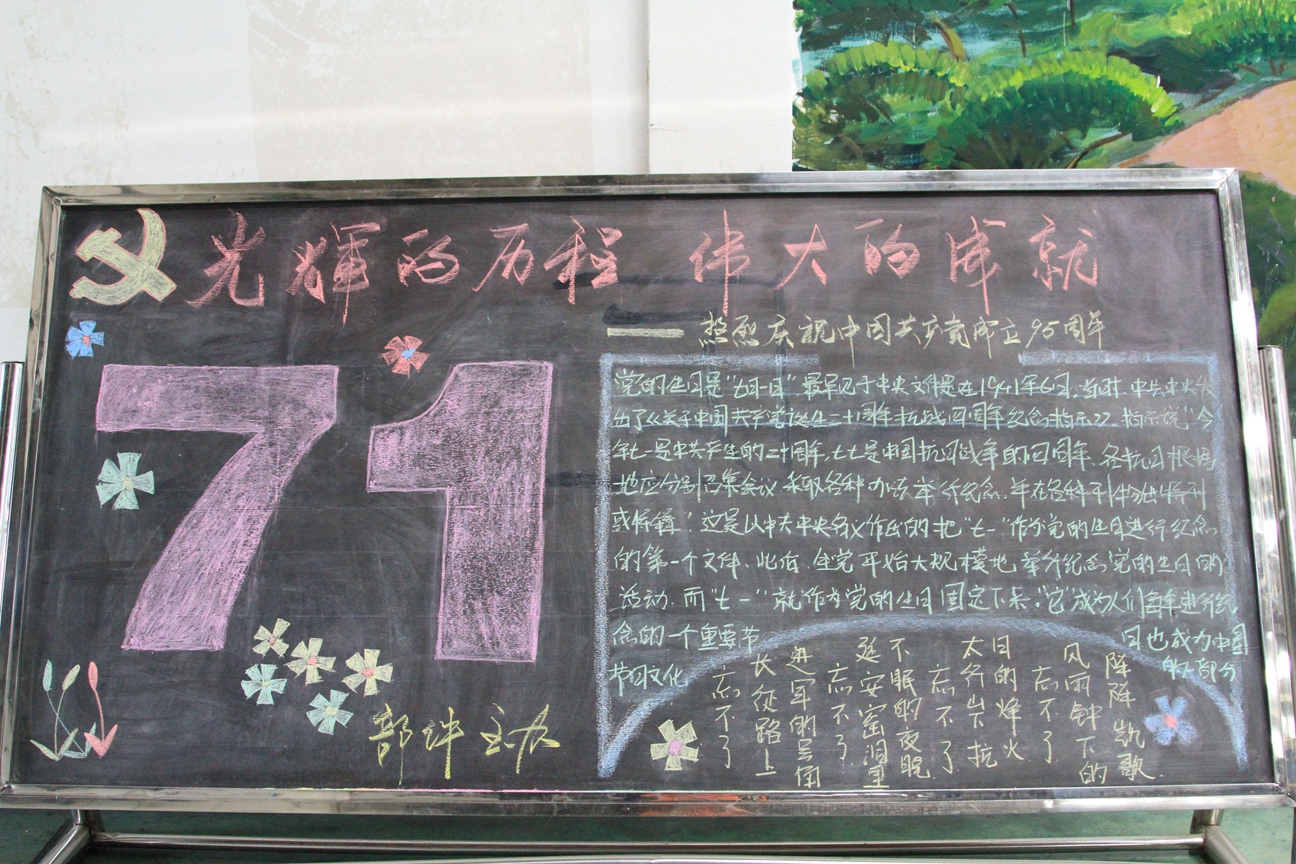 光辉的历程 伟大的成就
—— 热烈庆祝中国共产党成立95周年
71
党的生日是“七月一日”最早见于中央文件是在1941年6月.当时.中共中央发
出了《关于中国共产党诞生二十周年抗战四周年纪念指示》.指示说“今
年七一是中共产生的二十周年.七七是中国抗日战争的四周年.各抗日根据
地应分别召集会议.采取各种办法.举行纪念.并在各种刊物出特刊
或特辑”这是以中共中央名义作出的把“七一”作为党的生日进行纪念
的第一个文件.此后.全党开始大规模地举行纪念党的生日的
活动.而“七一”就作为党的生日固定下来.它成为人们每年进行纪
念的一个重要节日也成为中国
节日文化的部分
忘不了
长征路上
进军的号角
忘不了
延安窑洞里
不眠的夜晚
忘不了
太行山下抗
日的烽火
忘不了
风雨钟下的
阵阵凯歌.
主办